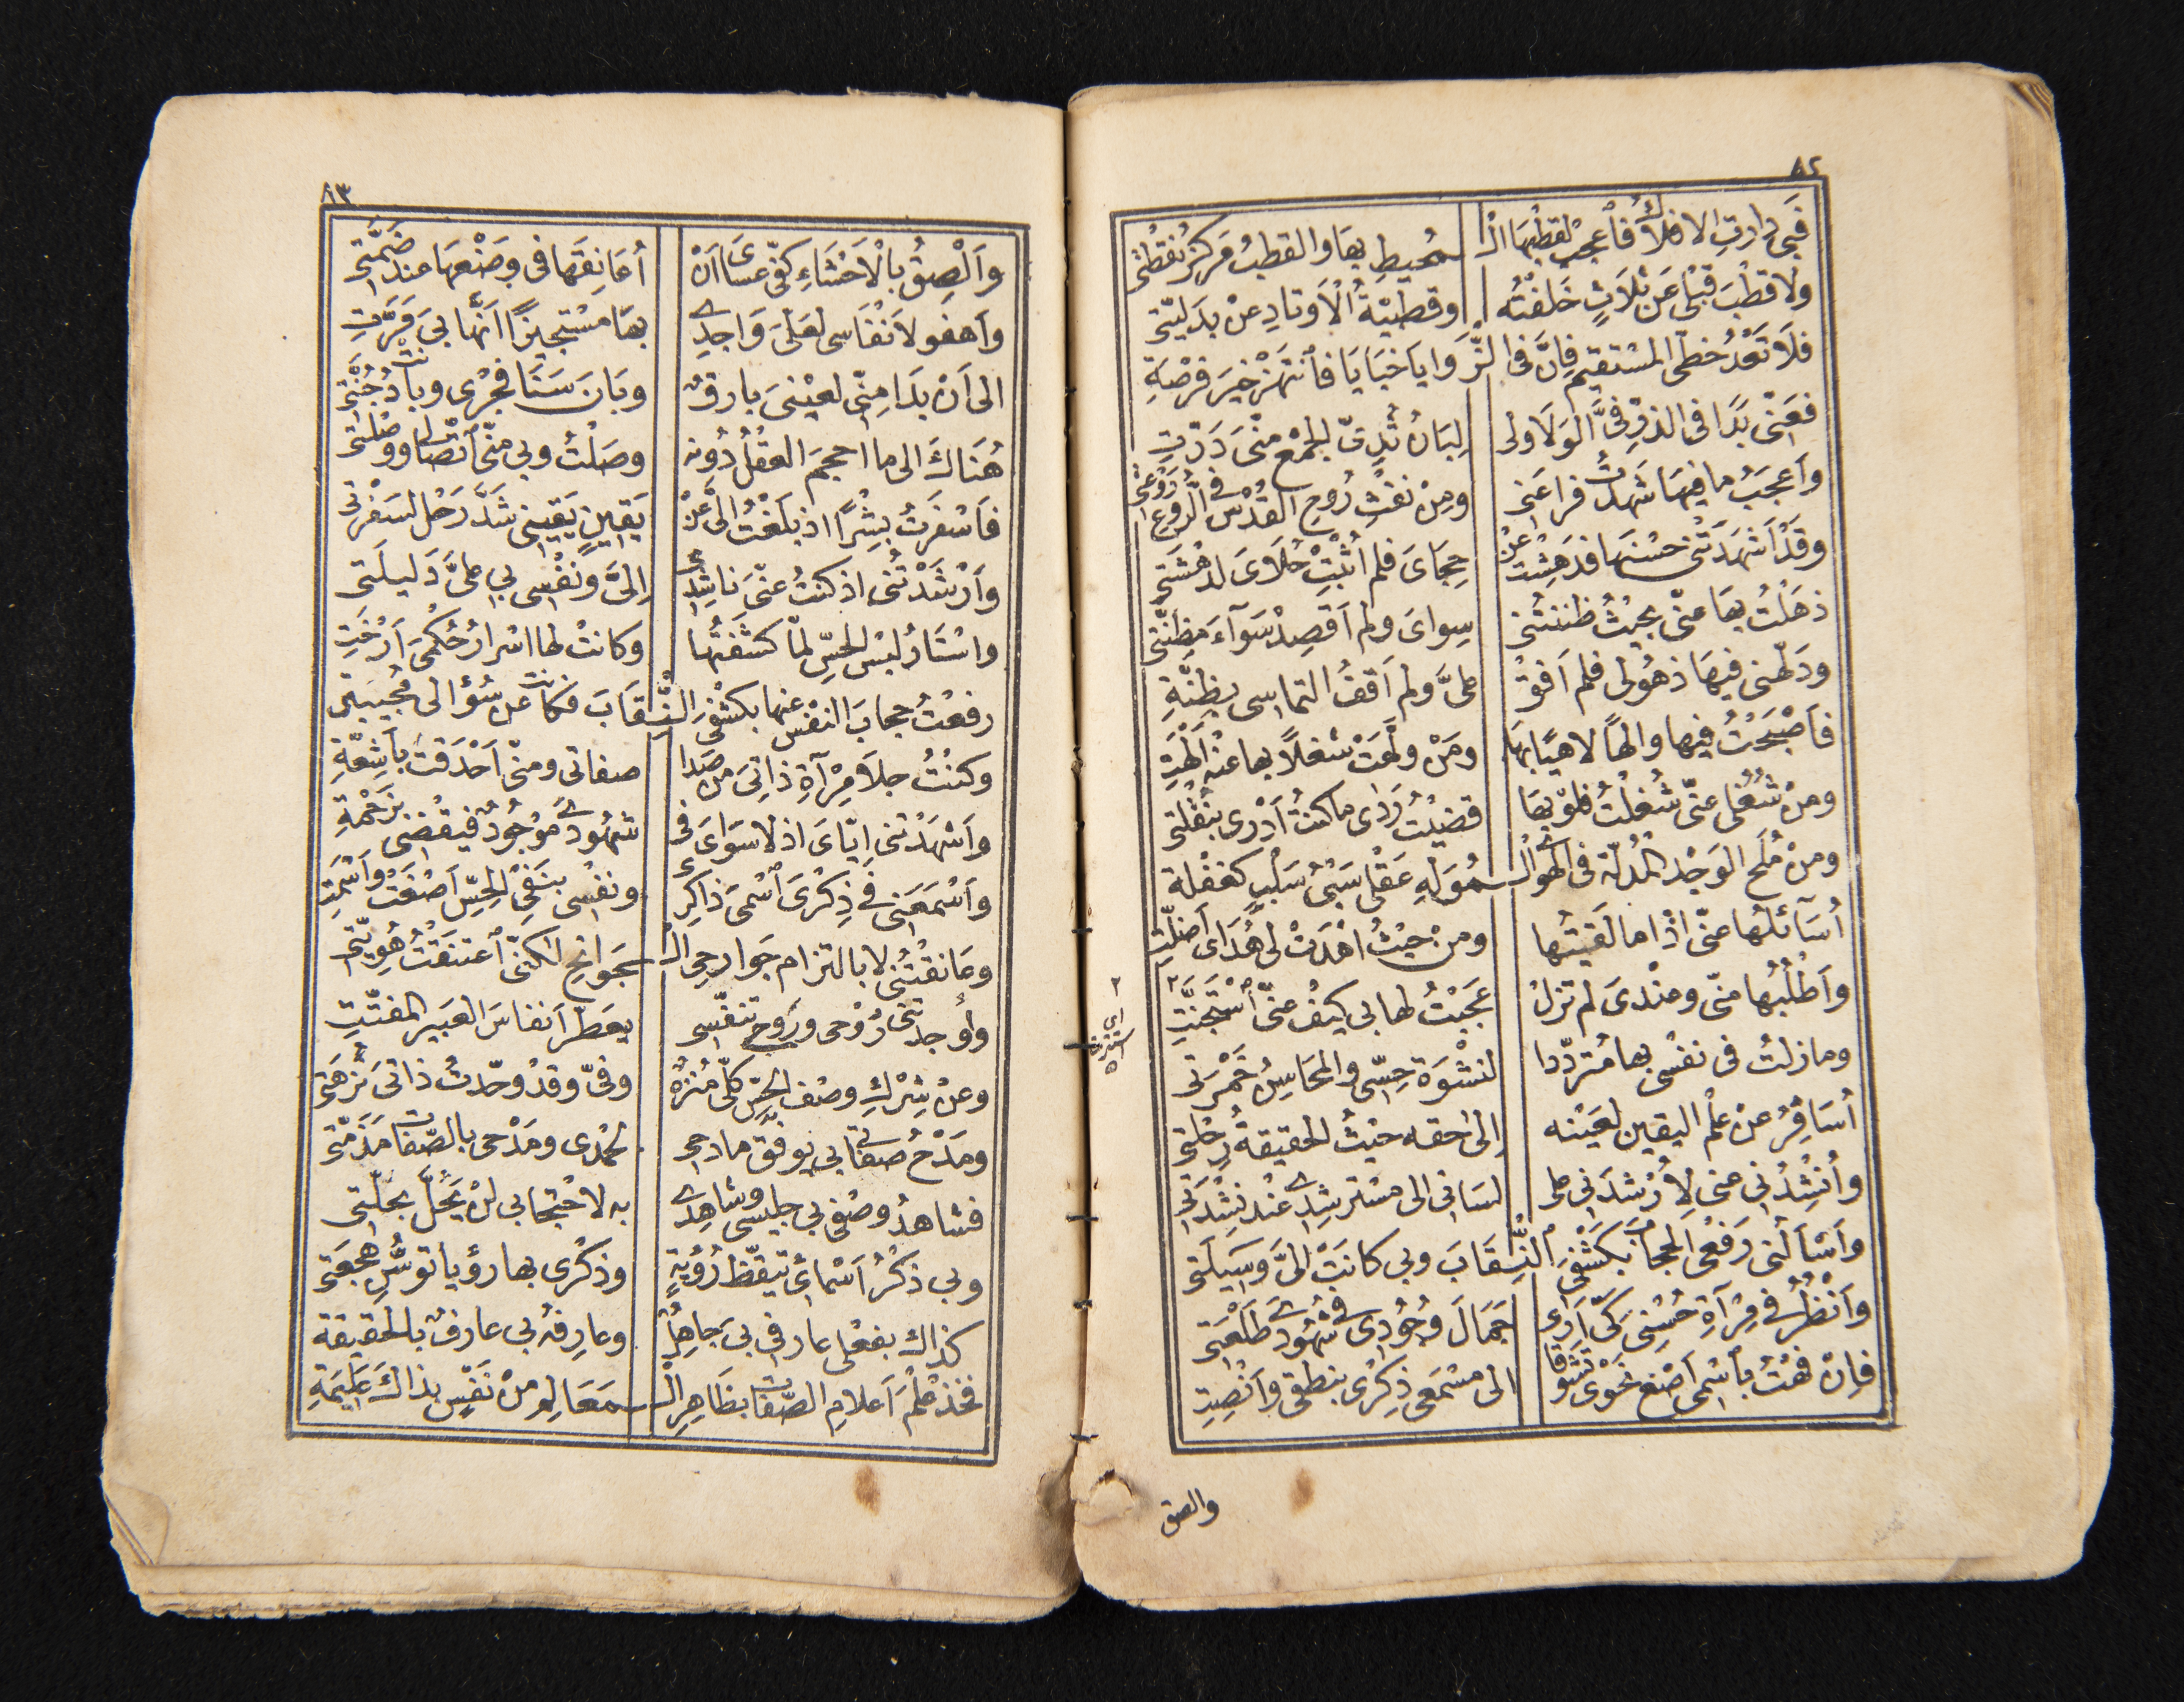 ٨٢
فَبِى دارتِ الافلاكُ فاَعجب لقطبِهَا الْـ ـمُحيطِ بِهَا والقطبُ مَركزُ نُقطَتى
ولا قطْبَ قَبْلى عَن ثلاثٍ خَلَفْتُه وقطبيّةُ الْاَوتادِ عنْ بدَليّتى
فلَا تَعْدُ خطّى المُسْتقيمَ فاِنَّ فى الزَّ وَايا خبَايَا فاَنتَهزْ خيرَ فرْصَةِ
فعَنّى بدَا فى الذرِّ فىَّ الْوَلَا ولى لِبَانُ ثُدِىّ الجمْع منّىَ دَرّتِ
وَاعجَبُ ما فيهَا شَهِدْتُ فراعَنى ومنْ نفثِ رُوحِ القُدْسِ فى الرُّوعِ رَوْعتى
وقَدْ اَشْهدَتْنى حسْنَها فدَهِشْتُ عنْ حِجَاىَ فلم اُثْبِتْ حُلَاىَ لدهْشَتى
ذهَلْتُ بهَا عنّى بحيْثُ ظننتُنى سِواىَ ولم اَقصِدْ سَوآءَ مَظِنّتى
ودَلّهنى فيهَا ذهُولى فلم اَفِقْ علىَّ ولم اَقفُ التماسى بظِنّةِ
فاَصْبَحْتُ فيها والهًا لاهيًا بهَا ومَنْ ولّهَتْ شغلًا بها عنْهُ اَلْهَتِ
ومنْ شُغُلى عنّى شُغلْتُ فلوْ بهَا قضيْتُ رَدًى ما كنتُ اَدْرى بنُقْلتى
ومنْ مُلَحِ الوَجْدِ المُدلّهِ فى الهوَى الْـ ـمُوَلّهِ عَقْلى سَبْىُ سَلْبٍ كغفْلة
اُسَآئلُها عنّى اذَا ما لَقيتُها ومنْ حيْثُ اهْدَتْ لى هُدَاىَ اَضلّتِ
وَاَطْلُبُها منّى وعنْدىَ لم تزلْ عَجَبْتُ لها بى كيْفَ عنّى ٱسْتجَنّتِ
٢ اى استترت
وما زلتُ فى نفْسى بها مُتردّدا لنشْوَة حِسّى والمَحَاسِنُ خَمْرتى
اُسَافِرُ عنْ علْم اليقين لعَيْنه الى حقه حيْثُ الحقيقةُ رِحْلتى
واُنشِدُنى عنى لِاُرْشدَنى على لسَانى الى مسْترشِدى عنْد نِشْدَتى
وَاَسْأَلُنى رَفْعى الحِجابَ بكشْفِىَ ٱلنّـِ ـقَابَ وبى كانَتْ الىَّ وَسيلَتى
وَاَنْظُرُ فى مِرْآةِ حُسْنِىَ كَىْ اَرى جَمَالَ وُجُودى فى شُهُودىَ طَلْعَتى
فاِنْ فُهْتُ بٱسْمى اَصْغ نَحْوى تَشوّقًا الى مسْمَعى ذِكْرى بنطقى واَنْصِتِ
والصق
٨٣
وَاَلْصِقُ بالْاَحْشَاءِ كفّى عسَاىَ اَنْ اُعَانِقَهَا فى وَضْعِهَا عند ضَمَّتى
وَاَهفو لاَنْفَاسى لعَلّىَ وَاجِدى بهَا مسْتجيزًا اَنّهَا بِىَ مَرَّتِ
الى اَنْ بدَا منّى لعيْنىَ بارقٌ وبَانَ سَنَا فَجْرى وبانتْ دُجُنَّتى
هُنَاكَ الى ما احجمَ العقْلُ دُونه وصَلْتُ وبى منّى ٱتّصَالى ووُصْلتى
فاَسْفَرْتُ بِشْرًا اذ بلَغْتُ الىَّ عَنْ يَقينٍ يَقينى شَدَّ رَحْل لسَفْرتى
وَاَرْشَدْتُنى اذ كنتُ عنّى نَاشِدى اِلىَّ ونفْسى بى علىَّ دَليلَتى
واسْتَارُ لبْسِ الحِسّ لمّا كشَفْتُها وكانتْ لها اسْرارُ حُكْمىَ اَرْخَتِ
رفعْتُ حجابَ النفْس عنها بكشْفىَ النّـِ ـقَابَ فكانتْ عن سُؤالى مُجيبَتى
وكنْتُ جِلَا مِرْآةِ ذاتِىَ من صَدا صفاتى ومنّى اَحْدَقتْ بأَشِعّةِ
وَاَشهَدْتُنى اِيّاىَ اذ لا سِوَاىَ فى شهُودىَ موْجُودٌ فيقْضى بزَحْمَةِ
وَاَسْمَعُنى فى ذِكْرىَ اَسْمىَ ذاكِرى ونفْسى بنَفْىِ الحِسّ اَصْغَتْ وَاَسْمَتِ
وعَانقْتُنى لا بالتزام جَوارِحى الْـ ـجَوانحَ لكنّى ٱعتنَقْتُ هُويّتى
وَاَوْجدتُنى رُوْحى ورَوحُ تنفّسى يعَطّرُ اَنفاسَ العَبير المفَتّتِ
وعنْ شِرْكِ وصْف الحِسّ كلّى مُنزَّهٌ وفىّ وقدْ وحّدتُ ذاتىَ نُزهَتى
ومَدْحُ صفاتى بى يوفّقُ مادحى لحمْدى ومَدْحى بالصّفاتِ مَذَمّتى
فشاهدُ وصْفى بى جليسى وشاهِدى به لاحْتِجابى لنْ يَحُلَّ بحلّتى
وبى ذكْرُ اَسْمائى تيقّظُ رُؤْيةٍ وذكْرى بها رؤْيا توَسُّنِ هجْعَتى
كذاك بفعْلى عارفى بىَ جاهِلٌ وعارِفُه بى عارفٌ بالحقيقة
فخذْ علْمَ اَعلامِ الصّفاتِ بظَاهِرِ الْـ ـمَعَالِمِ منْ نَفْسٍ بذاكَ عَليمَةِ